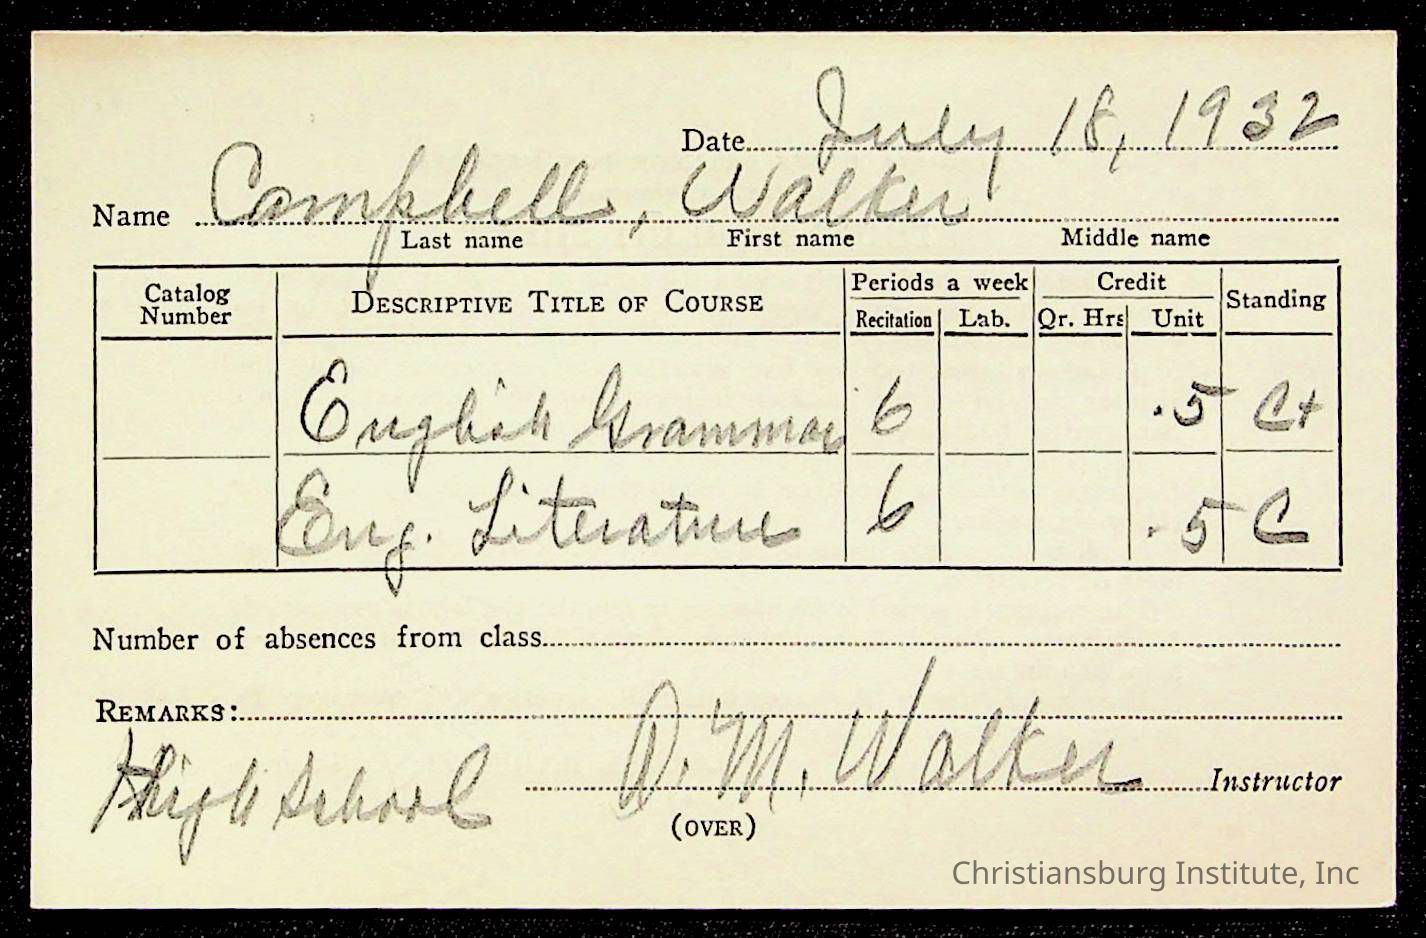 Date July 18, 1932
Name Campbell, Walker
Last name First name Middle name
Catalog Number DESCRIPTIVE TITLE OF COURSE Periods a week Credit Standing
Recitation Lab. Qr. Hrs Unit
English Grammar 6 .5 C+
Eng. Literature 6 .5 C
Number of absences from class
REMARKS:
High School M. Walker Instructor
(OVER)
Christiansburg Institute, Inc